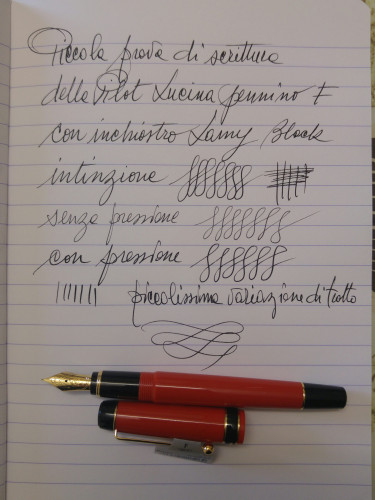 Piccola prova di scrittura
della Pilot Lucina pennino F
con inchiostro Lamy Black
intinzione
senza pressione
con pressione
piccolissima variazione di tratto